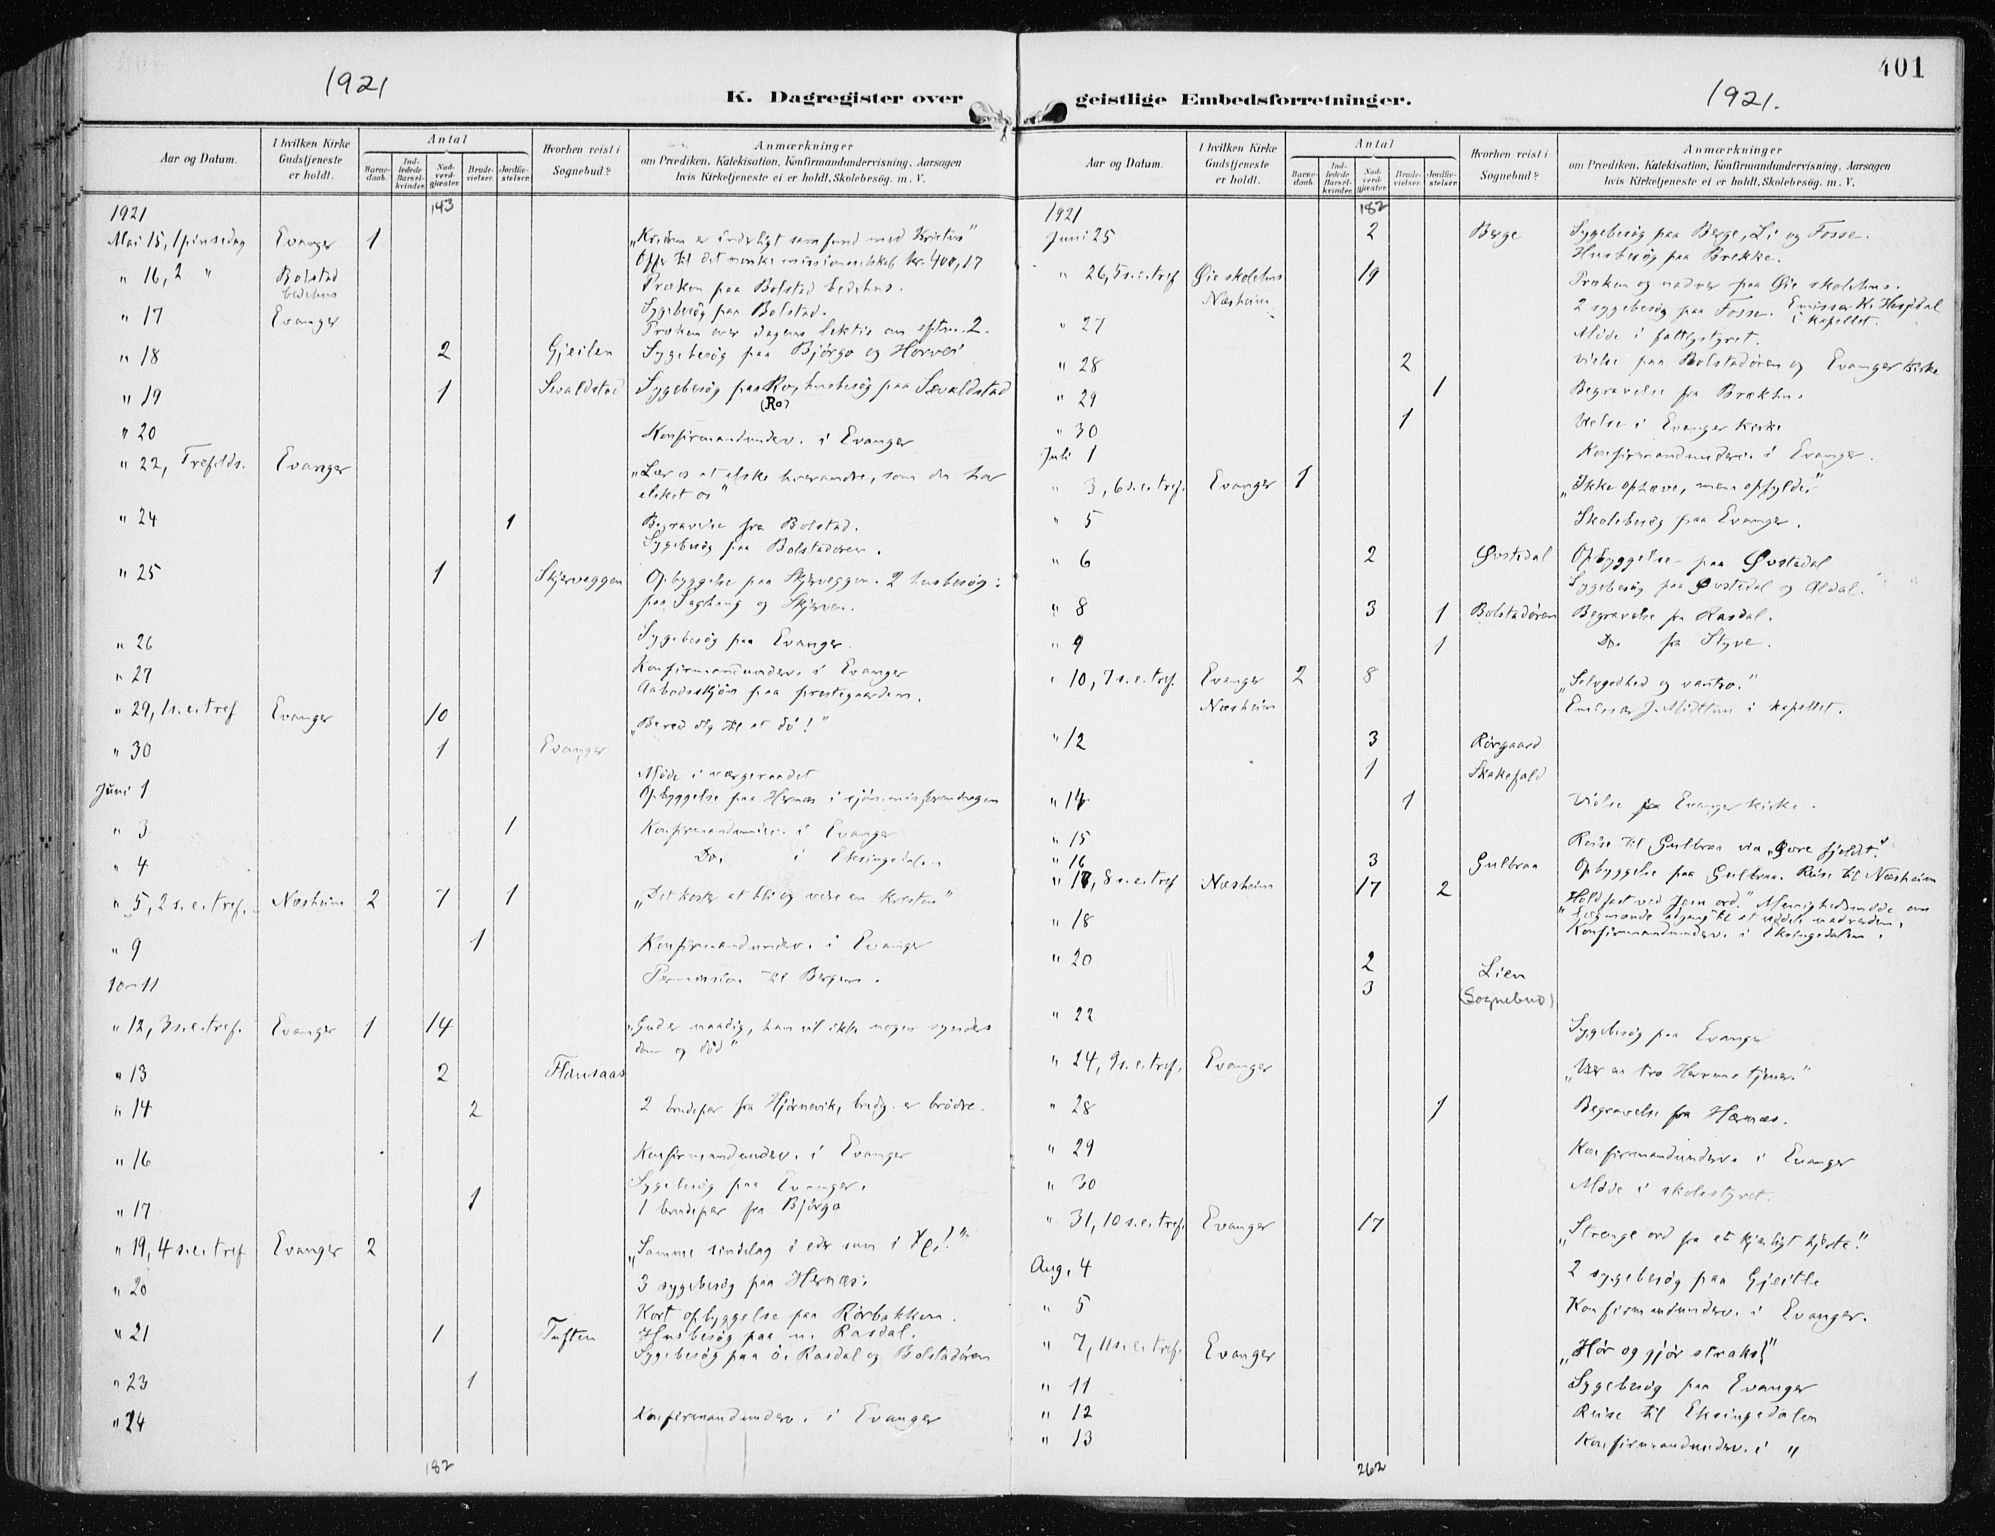 401
1921
K. Dagregister over
geistlige Embedsforretninger.
1921.
Aar og Datum.
I hvilken Kirke Gudstjeneste er holdt.
Antal
Barnedaab.
Indledede Barselkvinder.
Nadverdgjæster.
Brudevielser.
Jordfæstelser.
Hvorhen reist i Sognebud?
Anmærkninger
om Prædiken, Katekisation, Konfirmandundervisning, Aarsagen
hvis Kirketjeneste ei er holdt, Skolebesøg. m. V.
1921 143
Mai 15, 1 pinsedag Evanger 1 inderligt samfund med Kristus"
Offr til det norske missionsselskab kr. 400,17
" 16, 2 " Bolstad bedehus Præken paa Bolstad bedehus.
Sygebesøg paa Bolstad.
" 17 Evanger Præken over dagens lektie
" 18 2 Gjeilen Sygebesøg paa Bjørgo og Horvei
" 19 1 Sævaldstad Sygebesøg paa Ro, husbesøg paa Sævaldstad
(Ro)
" 20 Konfirmandunderv. i Evanger
" 22, Trefolds. Evanger "Lær os at elske hverandre, som du har
elsket os"
" 24 1 Begravelse fra Bolstad.
Sygebesøg paa Bolstadøren.
" 25 1 Skjerveggen Opbyggelse paa Skjerveggen. 2 husbesøg:
paa Saghaug og Skjerven.
" 26 Sygebesøg paa Evanger.
" 27 Konfirmandunderv. i Evanger
Aabodsskjøn paa prestegaarden.
" 29, 1 s.e. tref Evanger 10 "Bered dig til at dø!"
" 30 1 Evanger
Møde i værgeraadet
Juni 1 Opbyggelse paa Hernæs i
" 3 1 Konfirmandunderv. i Evanger
" 4 Do. i Eksingedalen
" 5, 2 s.e. tref. Næsheim 2 7 1 "Det koster at bli og være en kristen"
" 9 1 Konfirmandunderv. i Evanger
10-11 Permission til Bergen.
" 12, 3 s.e. tref. Evanger 1 14 "Gud er naadig, han vil ikke nogen synders
dom og død"
" 13 2 Flausaas
" 14 2 2 brudepar fra Hjørnevik, brudg. er brødre.
" 16 Konfirmandunderv. i Evanger
Sygebesøg paa Evanger.
" 17 1 1 brudepar fra Bjørgo
" 19, 4 s.e. tref Evanger 2 "Samme sindelag i eder som i
" 20 3 sygebesøg paa Hernæs.
Kort opbyggelse paa Rørbakken.
" 21 1 Tuften Husbesøg paa n. Rasdal.
Sygebesøg paa ø. Rasdal og Bolstadøren
" 23 1
" 24 Konfirmandunderv. i Evanger
182
Aar og Datum.
I hvilken Kirke Gudstjeneste er holdt.
Antal
Barnedaab.
Indledede Barselkvinder.
Nadverdgjæster.
Brudevielser.
Jordfæstelser.
Hvorhen reist i Sognebud?
Anmærkninger
om Prædiken, Katekisation, Konfirmandundervisning, Aarsagen
hvis Kirketjeneste ei er holdt, Skolebesøg. m. V.
1921 182
Juni 25 2 Berge Sygebesøg paa Berge, Li og Fosse.
Husbesøg paa Brekke.
" 26, 5 s.e. tref Øie skolehus 19 Præken og nadver paa Øie skolehus.
Næsheim 2 sygebesøg paa Fosse. Emissær K. Hesjedal
i kapellet.
" 27 Møde i fattigstyret.
" 28 2 Vielse paa Bolstadøren og Evanger kirke
" 29 1 Begravelse fra Brækhus.
" 30 1 Vielse i Evanger kirke
Juli 1 Konfirmandunderv. i Evanger.
" 3, 6 s.e. tref. Evanger 1 "Ikke ophæve, men opfylde."
" 5 Skolebesøg paa Evanger.
" 6 2 Øvstedal Opbyggelse paa Øvstedal
Sygebesøg paa Øvstedal og Aldal.
" 8 3 1 Bolstadøren Begravelse fra Rasdal.
" 9 1 Do. fra Styve.
" 10, 7 s.e. tref. Evanger 2 8 "Selvgodhed og vantro."
Næsheim Emissær J. Midttun i kapellet.
" 12 3 Rørgaard
1 Skakefald
" 14 1 Vielse fra Evanger kirke.
" 15 Reise til Gulbraa via "Gore fjeldet."
" 16 3 Gulbraa Opbyggelse paa Gulbraa. Reise til Næsheim
" 17, 8 s.e. tref Næsheim 17 2 "Hold fast ved Jesu ord." Menighedsmøde om
lægmænds adgang til at uddele nadverden.
" 18 Konfirmandunderv. i Eksingedalen.
" 20 2 Lien
3 (Sognebud)
" 22 Sygebesøg paa Evanger
" 24, 9 s.e. tref. Evanger "Vær en tro Herrens tjener."
" 28 1 Begravelse fra Hernæs.
" 29 Konfirmandunderv. i Evanger
" 30 Møde i skolestyret.
" 31, 10 s.e. tref. Evanger 17 "Strenge ord fra et kjærligt hjerte."
Aug. 4 2 sygebesøg paa Gjeitle
" 5 Konfirmandunderv. i Evanger.
" 7, 11 s.e. tref. Evanger "Hør og gjør straks!"
" 11 Sygebesøg paa Evanger
" 12 Reise til Eksingedalen
" 13 Konfirmandunderv. i "
262